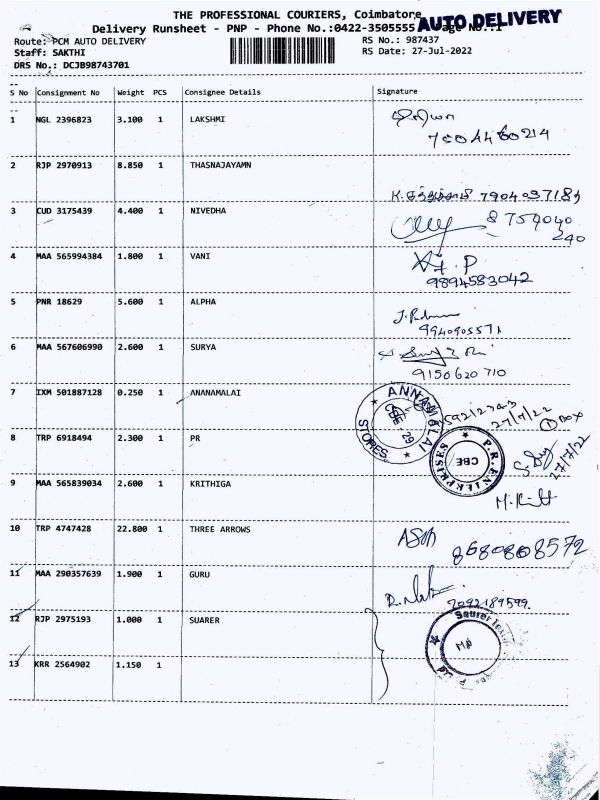 THE PROFESSIONAL COURIERS, Coimbatore
AUTO DELIVERY
Delivery Runsheet - PNP - Phone No.:0422-3505555 Page No.:1
Route: PCM AUTO DELIVERY RS No.: 987437
Staff: SAKTHI RS Date: 27-Jul-2022
DRS No.: DCJB98743701
S No Consignment No Weight PCS Consignee Details Signature
1 NGL 2396823 3.100 1 LAKSHMI
2 RJP 2970913 8.850 1 THASNAJAYAMN
3 CUD 3175439 4.400 1 NIVEDHA
8754040
240
4 MAA 565994384 1.800 1 VANI
9894583042
5 PNR 18629 5.600 1 ALPHA
9940905571
6 MAA 567606990 2.600 1 SURYA
9150620710
7 IXM 501887128 0.250 1 ANANAMALAI
ANNAMALAI STORES CBE - 29
27/7/22
1 Box
8 TRP 6918494 2.300 1 PR
P.R. ENTERPRISES CBE
27/7/22
9 MAA 565839034 2.600 1 KRITHIGA
10 TRP 4747428 22.800 1 THREE ARROWS
8680808572
11 MAA 290357639 1.900 1 GURU
7092189599
12 RJP 2975193 1.000 1 SUARER
Saurer
13 KRR 2564902 1.150 1